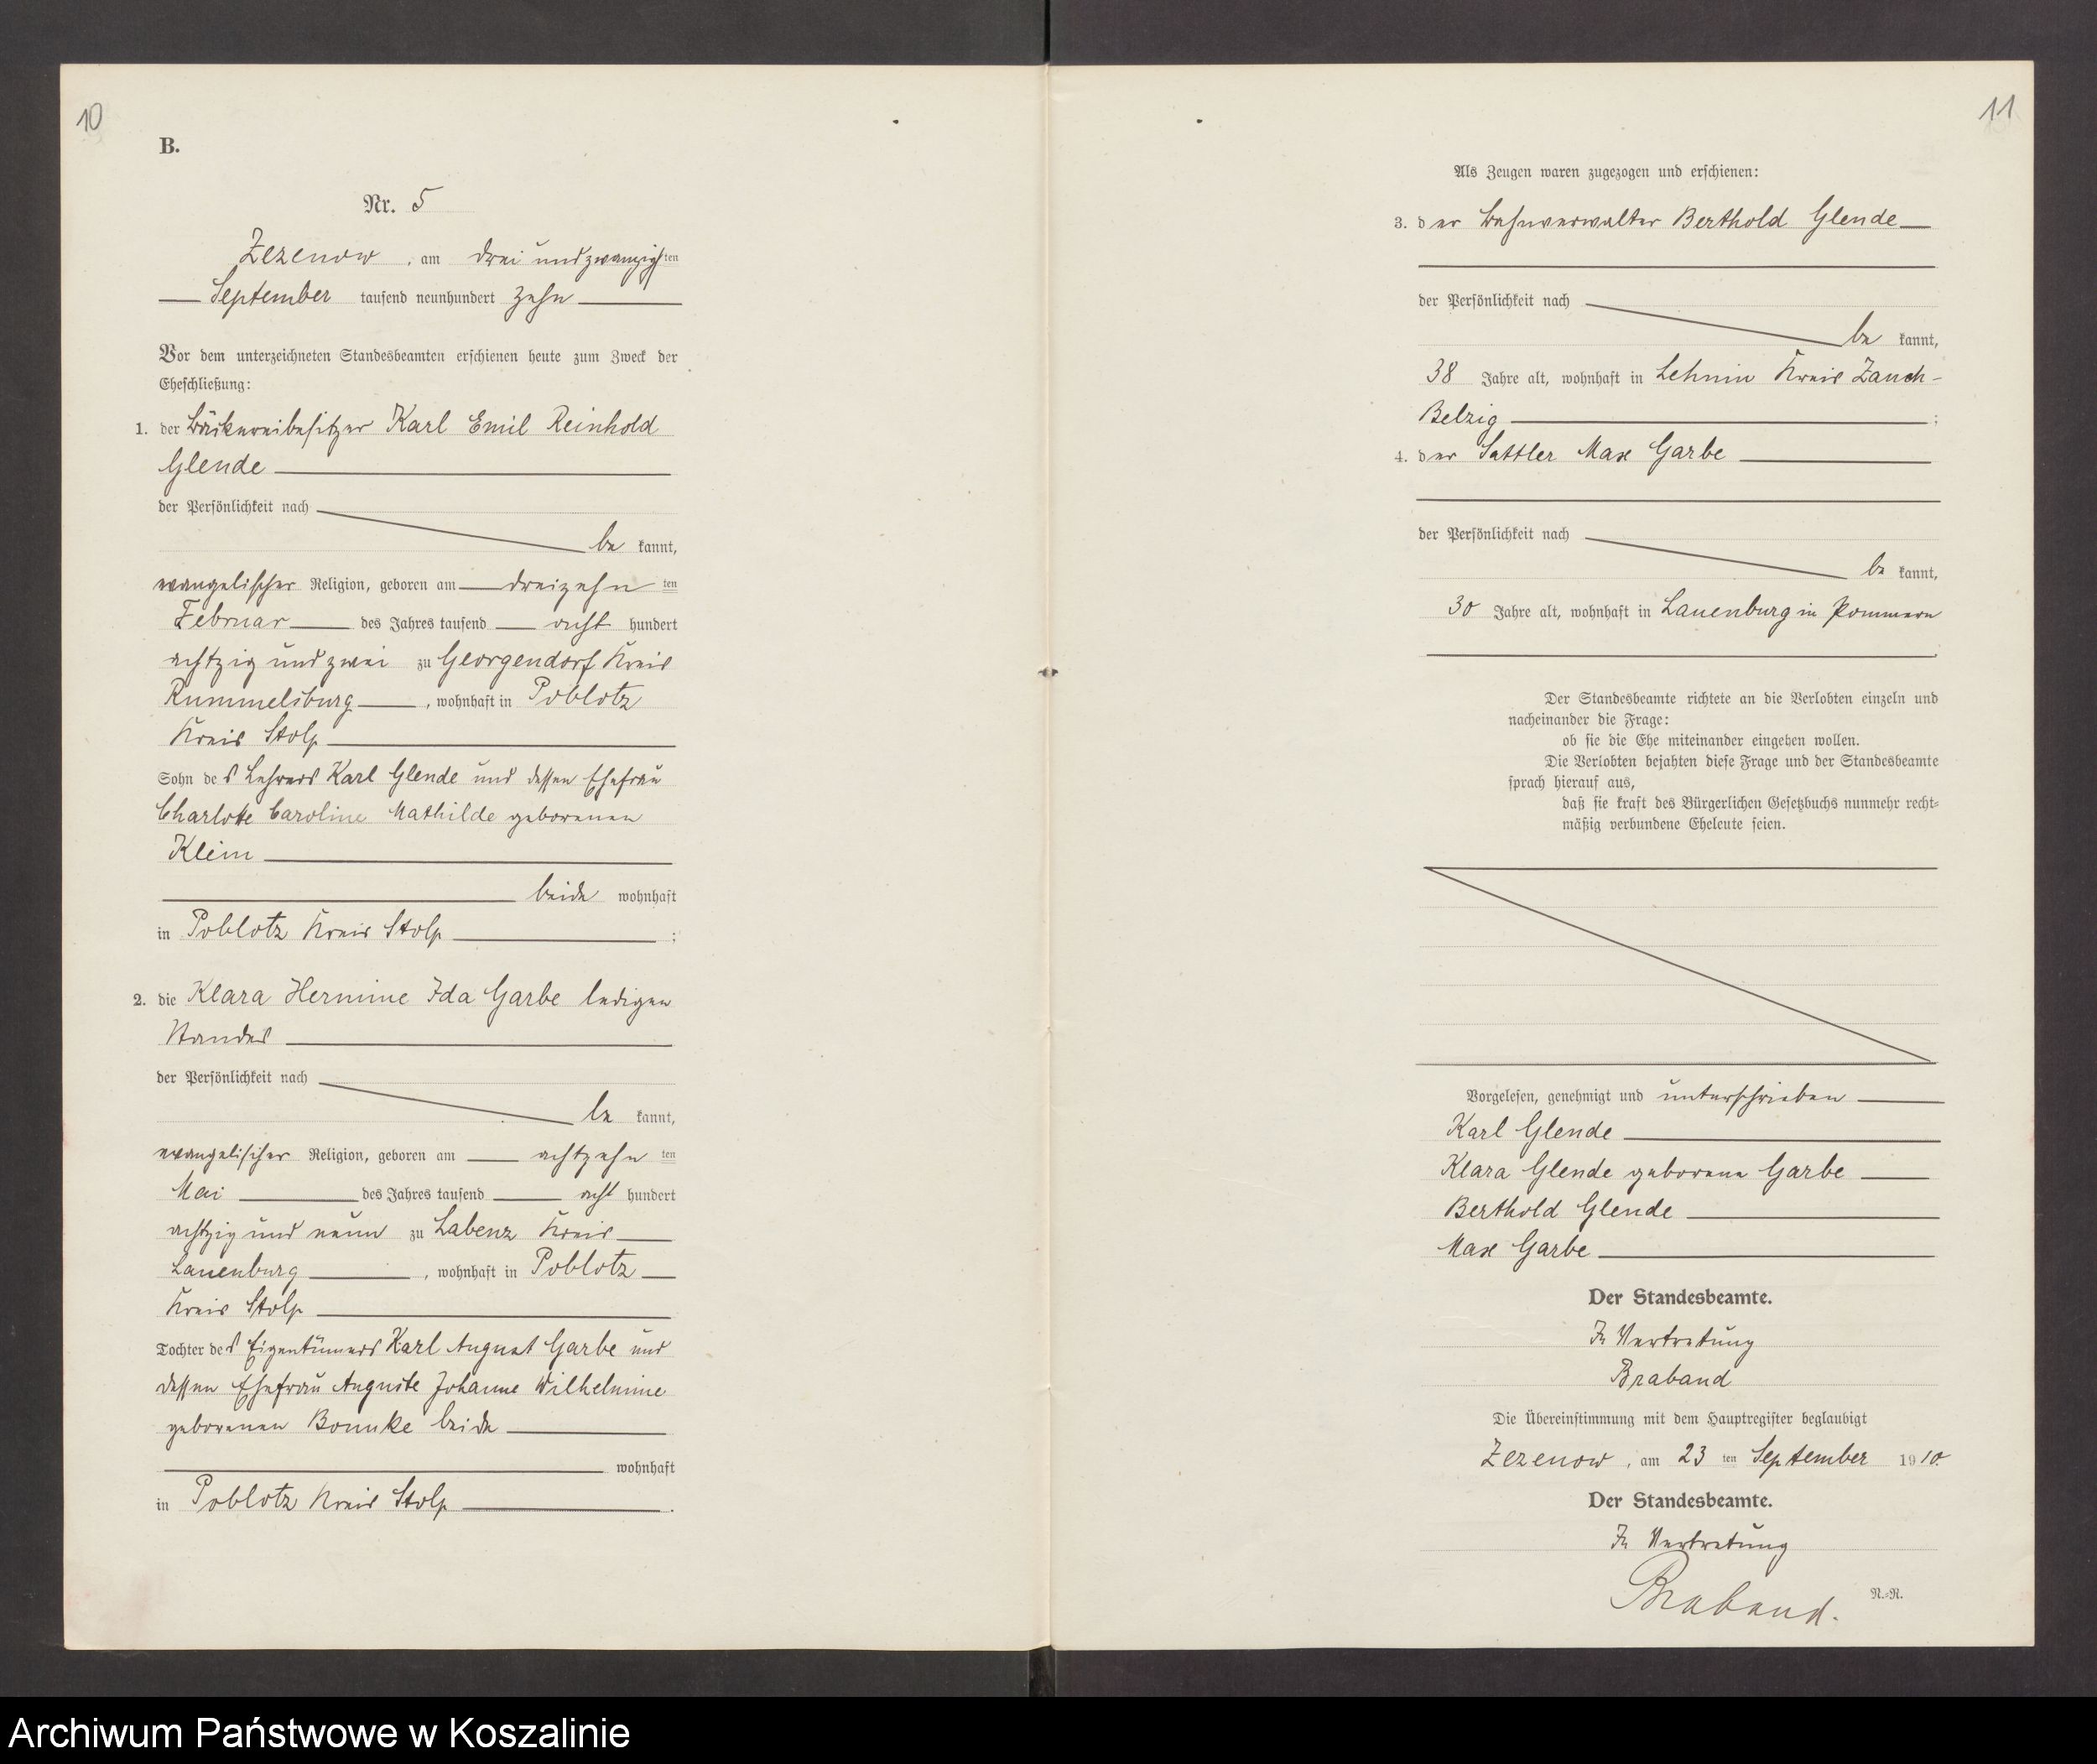 10
B.
Nr. 5
Zezenow, am drei und zwanzigsten
September tausend neunhundert zehn
Vor dem unterzeichneten Standesbeamten erschienen heute zum Zweck der
Eheschließung:
1. der Bäckereibesitzer Karl Emil Reinhold
Glende
der Persönlichkeit nach
be kannt,
evangelischer Religion, geboren am dreizehn ten
Februar des Jahres tausend acht hundert
achtzig und zwei zu Georgendorf Kreis
Rummelsburg, wohnhaft in Poblotz
Kreis Stolp
Sohn des Lehrers Karl Glende und dessen Ehefrau
Charlotte Caroline Mathilde geborenen
Klein
beide wohnhaft
in Poblotz Kreis Stolp ;
2. die Klara Hermine Ida Garbe ledigen
Standes
der Persönlichkeit nach
be kannt,
evangelischer Religion, geboren am achtzehn ten
Mai des Jahres tausend acht hundert
achtzig und neun zu Labenz Kreis
Lauenburg, wohnhaft in Poblotz
Kreis Stolp
Tochter des Eigentümers Karl August Garbe und
dessen Ehefrau Auguste Johanne Wilhelmine
geborenen Bonnke beide
wohnhaft
in Poblotz Kreis Stolp .
11
Als Zeugen waren zugezogen und erschienen:
3. der Berthold Glende
der Persönlichkeit nach
be kannt,
38 Jahre alt, wohnhaft in Lehnin Kreis Zauch-
Belzig ;
4. der Sattler Max Garbe
der Persönlichkeit nach
be kannt,
30 Jahre alt, wohnhaft in Lauenburg in Pommern
.
Der Standesbeamte richtete an die Verlobten einzeln und
nacheinander die Frage:
ob sie die Ehe miteinander eingehen wollen.
Die Verlobten bejahten diese Frage und der Standesbeamte
sprach hierauf aus,
daß sie kraft des Bürgerlichen Gesetzbuchs nunmehr recht-
mäßig verbundene Eheleute seien.
Vorgelesen, genehmigt und unterschrieben
Karl Glende
Klara Glende geborene Garbe
Berthold Glende
Max Garbe
Der Standesbeamte.
In Vertretung
Braband
Die Übereinstimmung mit dem Hauptregister beglaubigt
Zezenow, am 23 ten September 1910.
Der Standesbeamte.
In Vertretung
Braband.
N.-R.
Archiwum Państwowe w Koszalinie